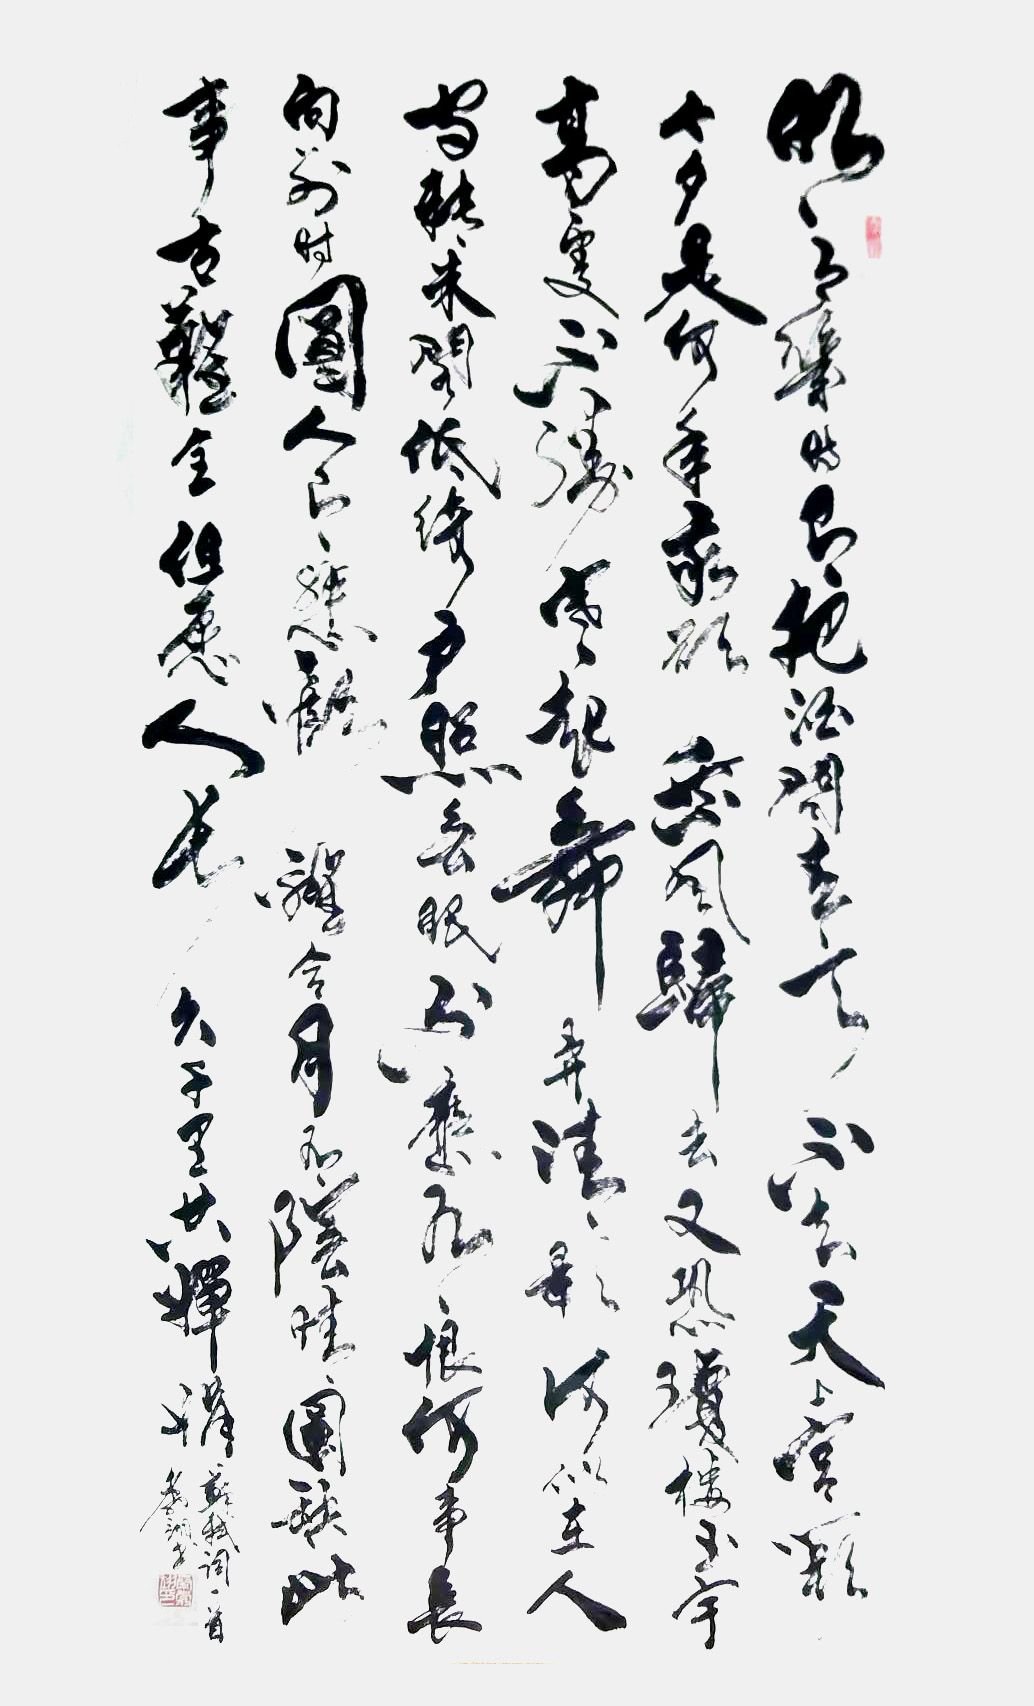 明月幾時有把酒問青天不知天上宮闕
今夕是何年我欲乘風歸去又恐瓊樓玉宇
高處不勝寒起舞弄清影何似在人
間轉朱閣低綺戶照無眠不應有恨何事長
向別時圓人有悲歡離合月有陰晴圓缺此
事古難全但願人長久千里共嬋娟
蘇軾詞一首